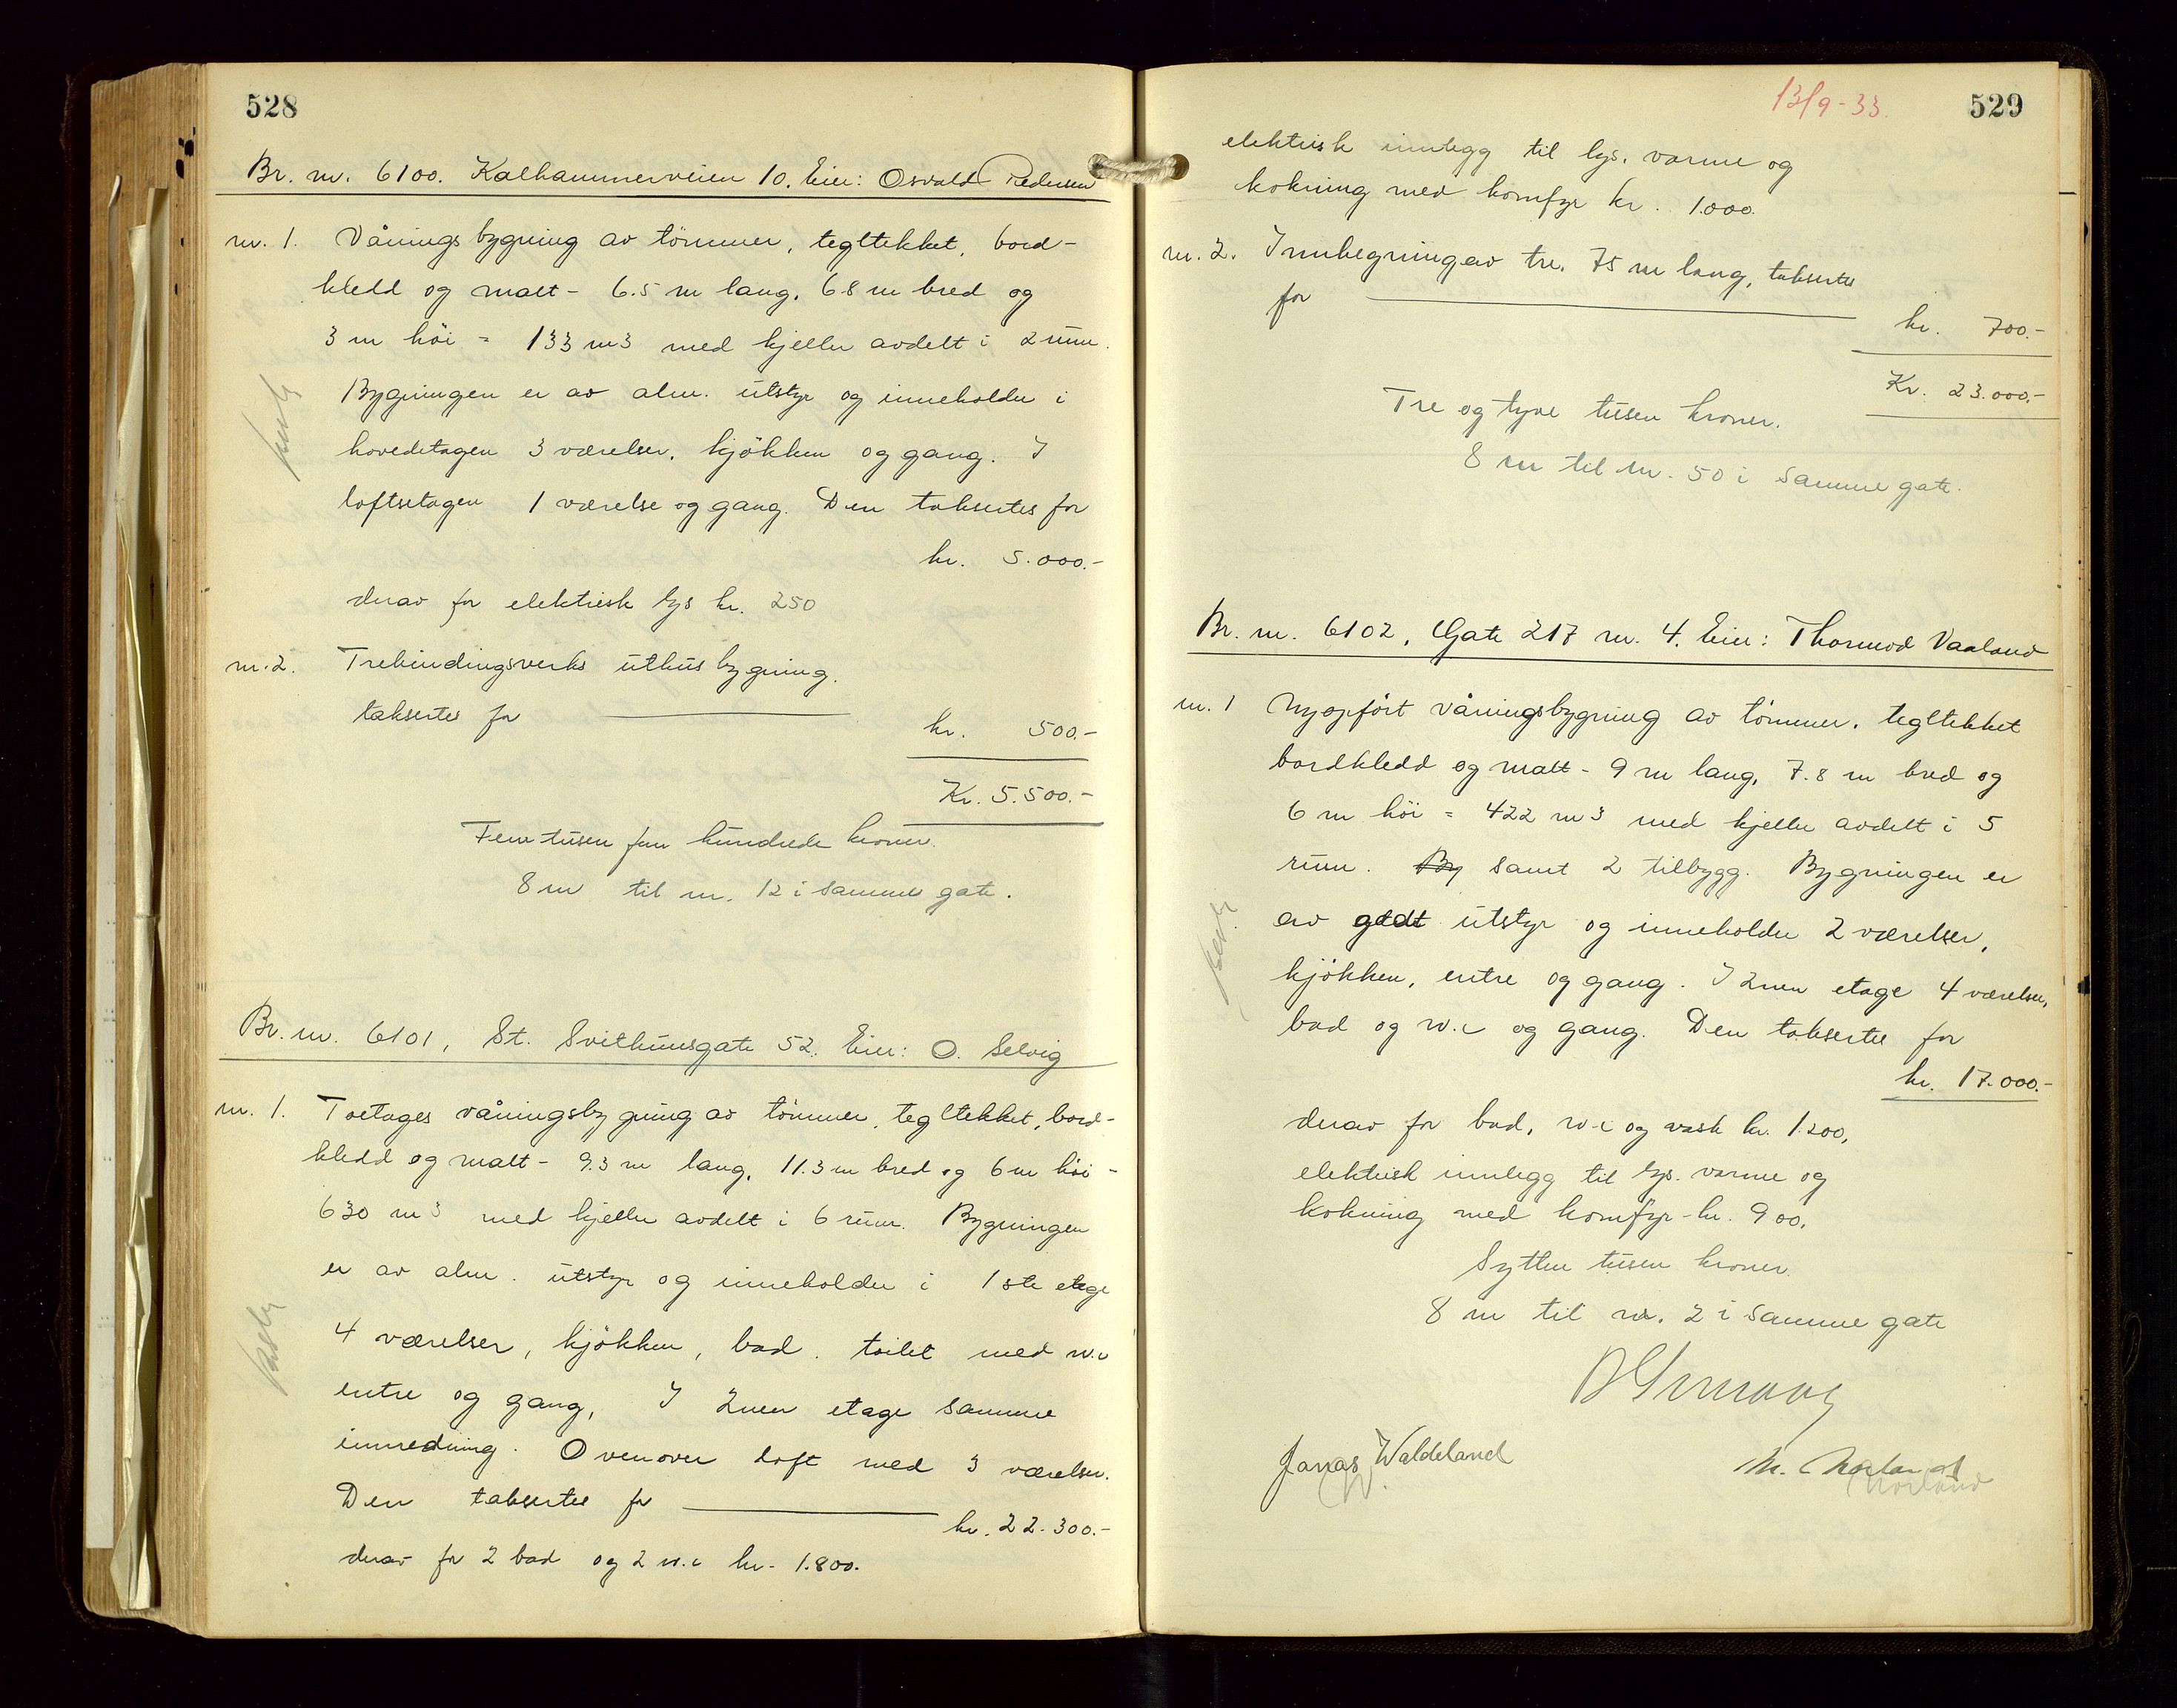 528
Br. nr. 6100. Kalhammerveien 10. Eier: Osvald Pedersen
nr. 1. Våningsbygning av tömmer, tegltekket, bord-
kledd og malt - 6.5 m lang, 6.8 m bred og
3 m höi = 133 m3 med kjeller avdelt i 2 rum.
Bygningen er av alm. utstyr og inneholder i
hovedetagen 3 værelser, kjökken og gang. I
loftsetagen 1 værelse og gang. Den taksertes for
kr. 5.000.-
derav for elektrisk lys kr. 250
nr. 2. Trebindingsverks uthusbygning.
taksertes for
kr. 500.-
Kr. 5.500.-
Fem tusen fem hundrede kroner.
8 m til nr. 12 i samme gate.
Br. nr. 6101, St. Svithunsgate 52. Eier: O. Selvig
nr. 1. Toetages våningsbygning av tömmer, tegltekket, bord-
kledd og malt - 9.3 m lang, 11.3 m bred og 6 m höi -
630 m3 med kjeller avdelt i 6 rum. Bygningen
er av alm. utstyr og inneholder i 1ste etage
4 værelser, kjökken, bad. toilet med w.c
entre og gang, I 2nen etage samme
innredning. Ovenover loft med 3 værelser.
Den taksertes for
kr. 22.300.-
derav for 2 bad og 2 w.c kr. 1.800.
13/9-33.
529
elektrisk innlegg til lys, varme og
kokning med komfyr kr. 1.000.
nr. 2. Innhegning av tre, 75 m lang, taksertes
for
kr. 700.-
Kr. 23.000.-
Tre og tyve tusen kroner.
8 m til nr. 50 i samme gate.
Br. nr. 6102, Gate 217 nr. 4. Eier: Thormod Vaaland
nr. 1 Nyopfört våningsbygning av tömmer, tegltekket
bordkledd og malt - 9 m lang, 7.8 m bred og
6 m höi = 422 m3 med kjeller avdelt i 5
rum. By samt 2 tilbygg. Bygningen er
av godt utstyr og inneholder 2 værelser,
kjökken, entre og gang. I 2nen etage 4 værelser,
bad og w.c og gang. Den taksertes for
kr. 17.000.-
derav for bad, w.c og vask kr. 1.200,
elektrisk innlegg til lys, varme og
kokning med komfyr - kr. 900.
Sytten tusen kroner.
8 m til nr. 2 i samme gate
Jonas Waldeland
W.